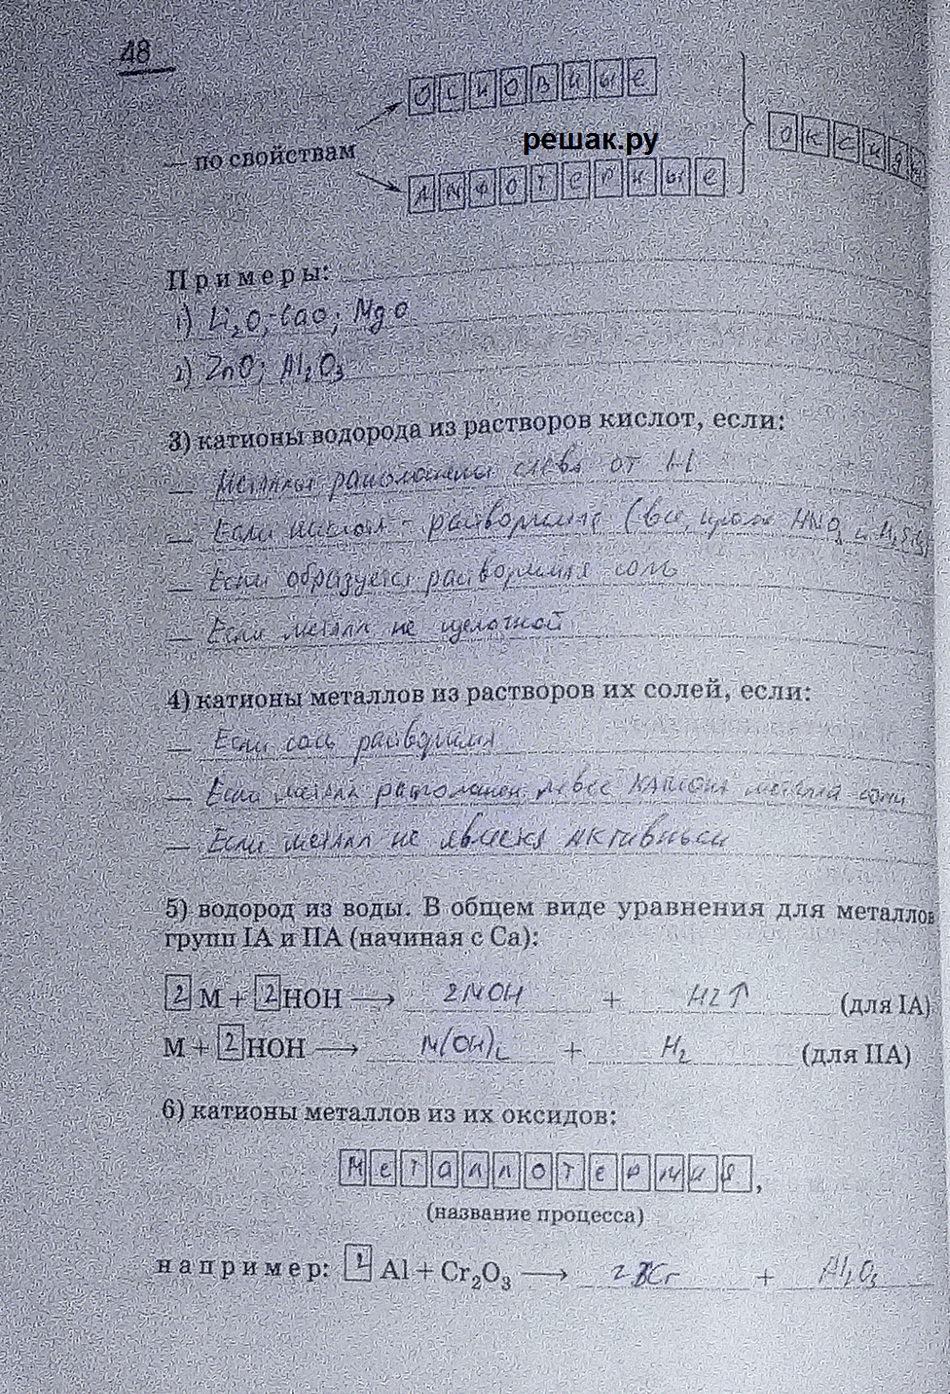 48
основные
— по свойствам
решак.ру
амфотерные
оксиды
Примеры:
1) Li₂O; CaO; MgO
2) ZnO; Al₂O₃
3) катионы водорода из растворов кислот, если:
— Металлы расположены слева от H
— Если кислота - растворимая (все, кроме HNO₃ и H₂SO₄)
— Если образуется растворимая соль
— Если металл не щелочной
4) катионы металлов из растворов их солей, если:
— Если соль растворима
— Если металл расположен левее катиона металла соли
— Если металл не является активным
5) водород из воды. В общем виде уравнения для металлов
групп IA и IIA (начиная с Ca):
2 M + 2 HOH → 2MOH + H2↑ (для IA)
M + 2 HOH → M(OH)₂ + H₂ (для IIA)
6) катионы металлов из их оксидов:
Металлотермия,
(название процесса)
например: 2 Al + Cr₂O₃ → 2Cr + Al₂O₃